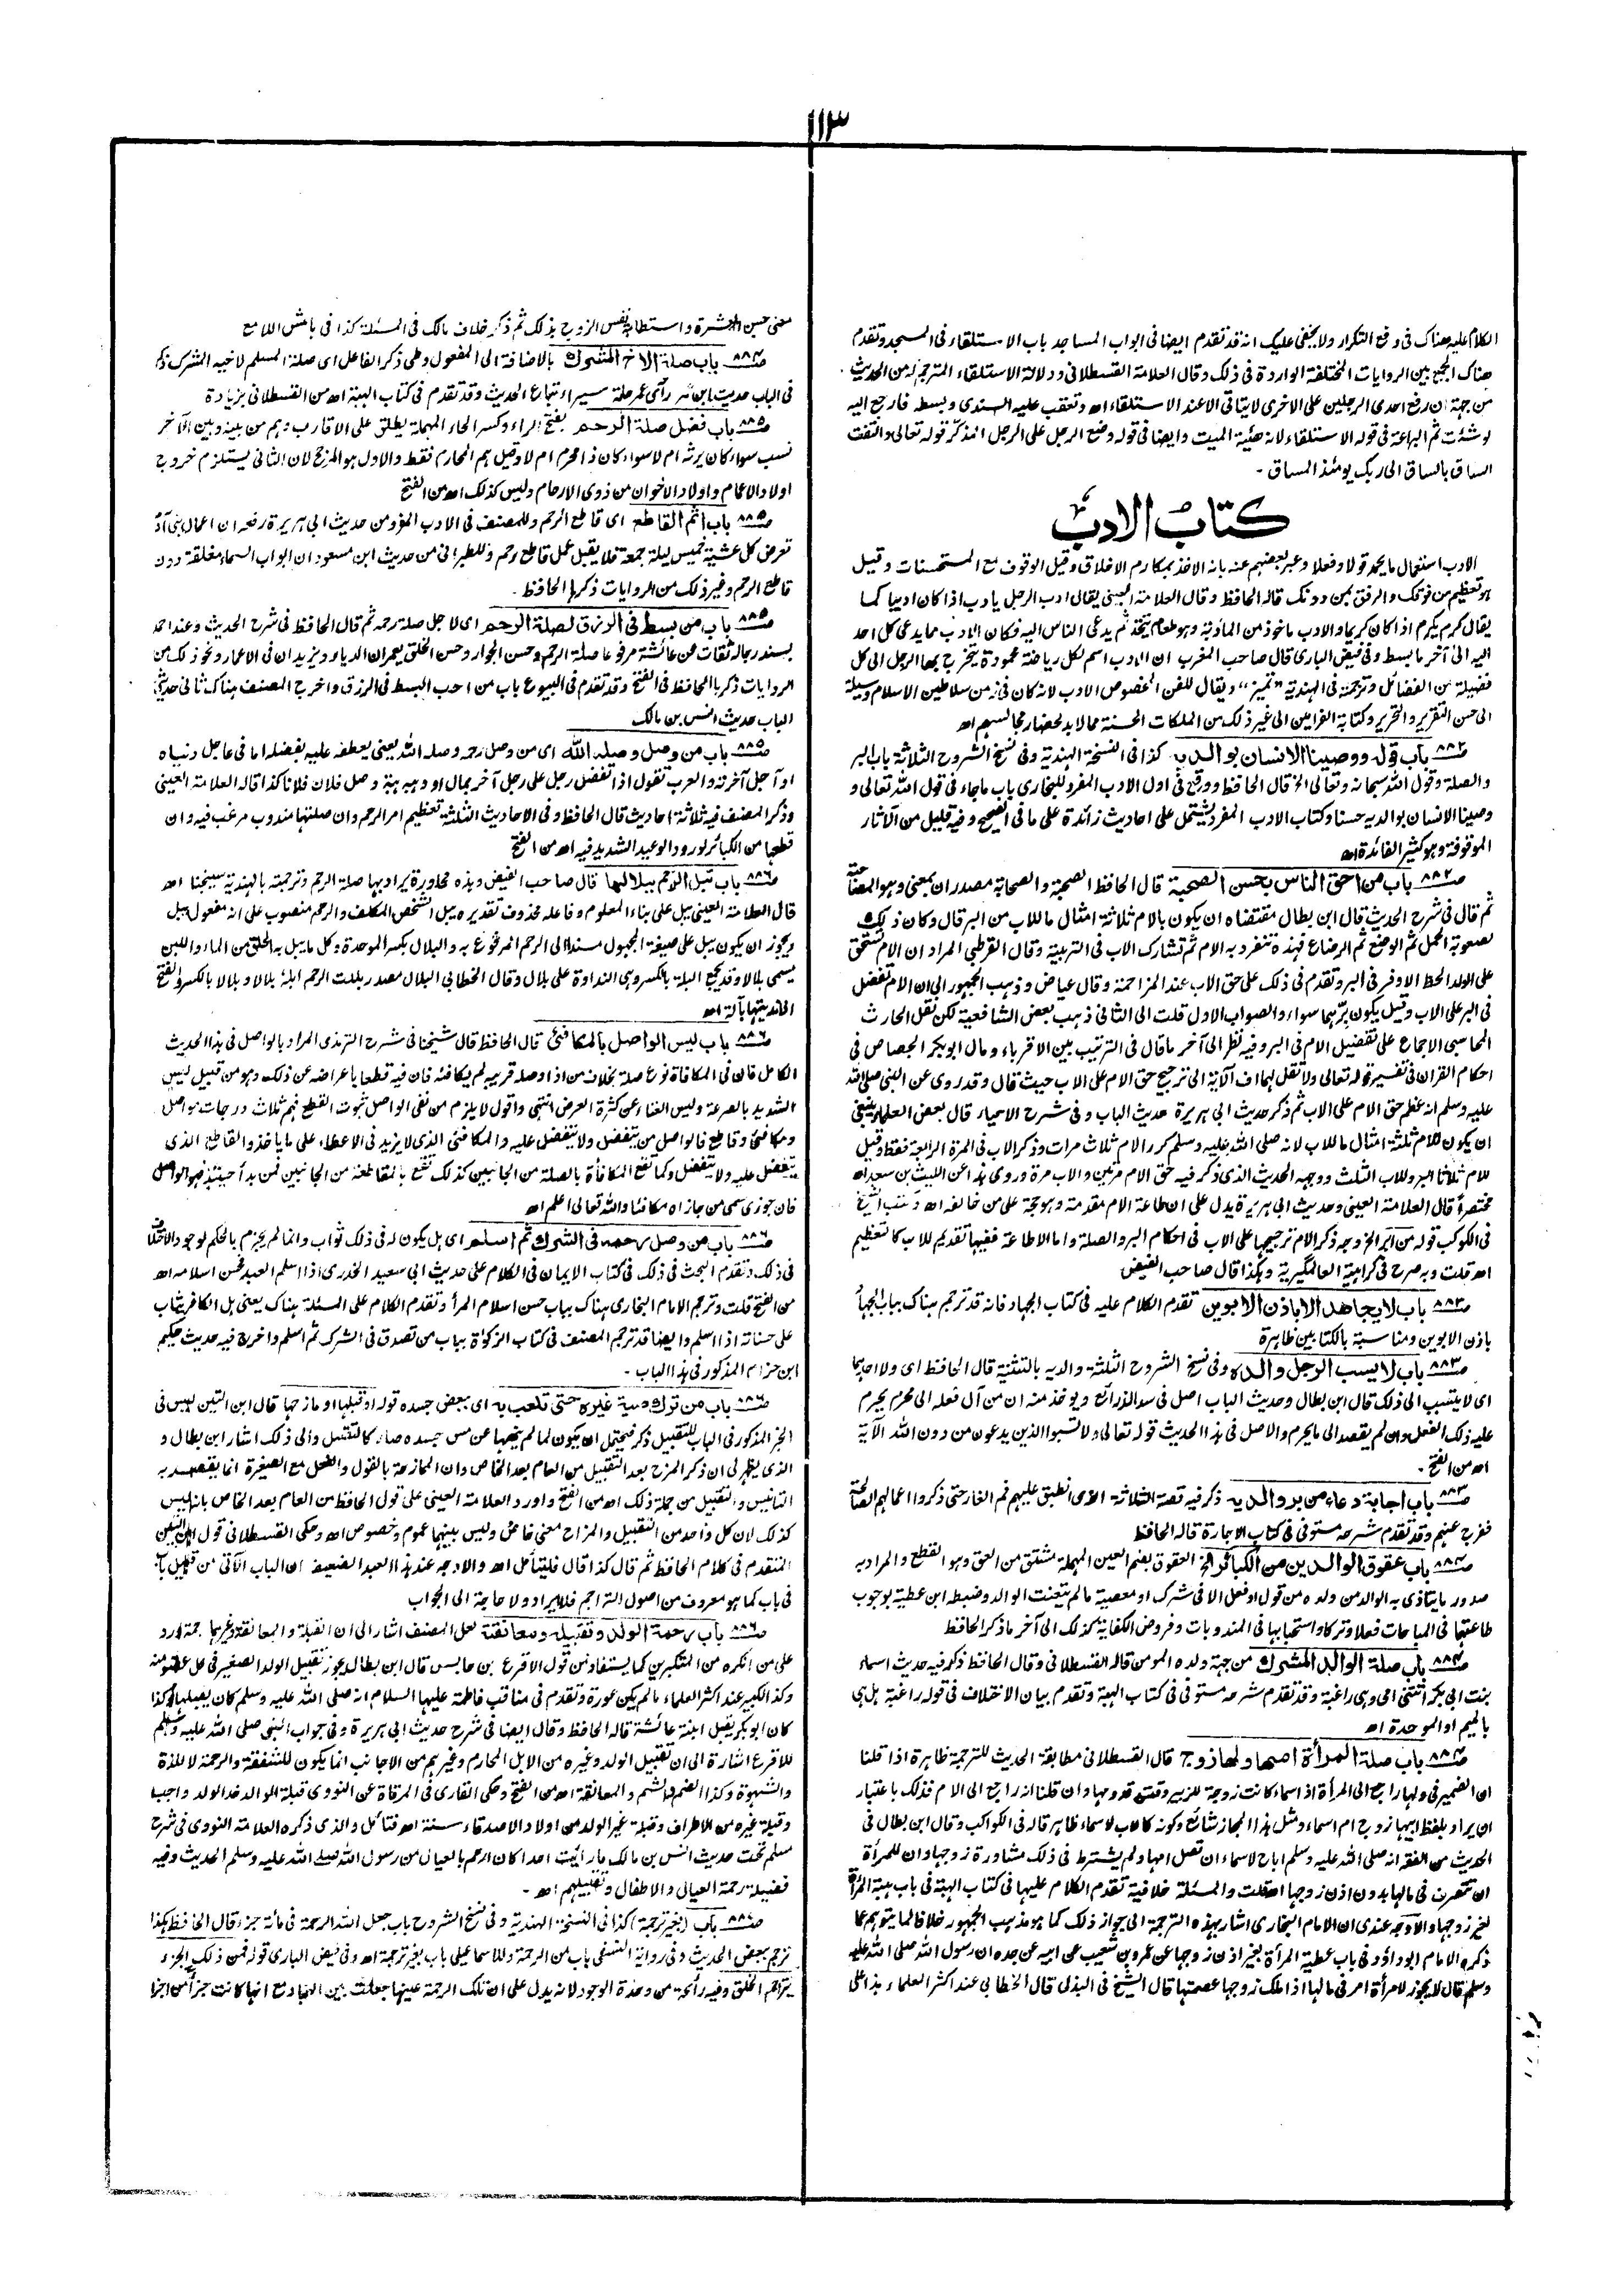 ١١٣
الكلام عليه هناك فى دفع التكرار ولا يخفى عليك انه قد تقدم ايضا فى ابواب المساجد باب الاستلقاء فى المسجد وتقدم
هناك الجمع بين الروايات المختلفة الواردة فى ذلك وقال العلامة القسطلانى ودلالة الاستلقاء المترجم له من الحديث
من جهة ان رفع احدى الرجلين على الاخرى لا يتاتى الا عند الاستلقاء اھ وتعقب عليه السندى وبسطه فارجع اليه
لو شئت ثم البراعة فى قوله الاستلقاء لانه هيئة الميت وايضا فى قوله وضع الرجل على الرجل المذكر قوله تعالى والتفت
الساق بالساق الى ربك يومئذ المساق -
كتاب الادب
الادب استعمال ما يحمد قولا وفعلا وعبر بعضهم عنه بانه الاخذ بمكارم الاخلاق وقيل الوقوف مع المستحسنات وقيل
هو تعظيم من فوقك والرفق بمن دونك قاله الحافظ وقال العلامة العينى يقال ادب الرجل يادب اذا كان اديبا كما
يقال كرم يكرم اذا كان كريما والادب ماخوذ من المأدبة وهو طعام يتخذ ثم يدعى الناس اليه فكان الادب مما يدعى كل احد
اليه الى آخر ما بسط وفى فيض البارى قال صاحب المغرب ان الادب اسم لكل رياضة محمودة يتخرج بها الرجل الى كل
فضيلة من الفضائل وترجمته فى الهندية "تميز" ويقال للفن المخصوص الادب لانه كان فى زمن سلاطين الاسلام وسيلة
الى حسن التقرير والتحرير وكتابة الفرامين الى غير ذلك من الملكات الحسنة مما لا بد لحضار مجالسهم اھ
ص٨٨٢ باب قوله ووصينا الانسان بوالديه كذا فى النسخة الهندية وفى نسخ الشروح الثلاثة باب البر
والصلة وقول الله سبحانه وتعالى الخ قال الحافظ ووقع فى اول الادب المفرد للبخارى باب ماجاء فى قول الله تعالى و
وصينا الانسان بوالديه حسنا وكتاب الادب المفرد يشتمل على احاديث زائدة على ما فى الصحيح وفيه قليل من الآثار
الموقوفة وهو كثير الفائدة اھ
ص٨٨٢ باب من احق الناس بحسن الصحبة قال الحافظ الصحبة والصحابة مصدران بمعنى وهو المصاحبة
ثم قال فى شرح الحديث قال ابن بطال مقتضاه ان يكون بالام ثلاثة امثال ما للاب من البر قال وكان ذلك
لصعوبة الحمل ثم الوضع ثم الرضاع فهذه تنفرد به الام ثم تشارك الاب فى التربية وقال القرطبى المراد ان الام تستحق
على الولد الحظ الاوفر فى البر وتقدم فى ذلك على حق الاب عند المزاحمة وقال عياض وذهب الجمهور الى ان الام تفضل
فى البر على الاب وقيل يكون برهما سواء والصواب الاول قلت الى الثانى ذهب بعض الشافعية لكن نقل الحارث
المحاسبى الاجماع على تفضيل الام فى البر وفيه نظر الى آخر ما قال فى الترتيب بين الاقرباء ومال ابو بكر الجصاص فى
احكام القرآن فى تفسير قوله تعالى ولا تقل لهما اف الآية الى ترجيح حق الام على الاب حيث قال وقد روى عن النبى صلى الله
عليه وسلم انه عظم حق الام على الاب ثم ذكر حديث ابى هريرة حديث الباب وفى شرح الاحياء قال بعض العلماء ينبغى
ان يكون للام ثلثة امثال ما للاب لانه صلى الله عليه وسلم كرر الام ثلاث مرات وذكر الاب فى المرة الرابعة فقط وقيل
للام ثلاثا البر وللاب الثلث ووجهه الحديث الذى ذكر فيه حق الام مرتين والاب مرة وروى هذا عن الليث بن سعد اھ
مختصرا قال العلامة العينى وحديث ابى هريرة يدل على ان طاعة الام مقدمة وهو حجة على من خالفه اھ وكتب الشيخ
فى الكوكب قوله من ابر الخ وجه ذكر الام ترجيحها على الاب فى احكام البر والصلة واما الاطاعة ففيها تقديم للاب كا لتعظيم
اھ قلت وبه صرح فى كراهية العالمگيرية وهكذا قال صاحب الفيض
ص٨٨٣ باب لا يجاهد الا باذن الابوين تقدم الكلام عليه فى كتاب الجهاد فانه قد ترجم هناك بباب الجهاد
باذن الابوين ومناسبة بالكتابين ظاهرة
ص٨٨٣ باب لا يسب الرجل والده وفى نسخ الشروح الثلثة والديه بالتثنية قال الحافظ اى ولا احدهما
اى لا يتسبب الى ذلك قال ابن بطال وحديث الباب اصل فى سد الذرائع ويوخذ منه ان من آل فعله الى محرم يحرم
عليه ذلك الفعل وان لم يقصد الى ما يحرم والاصل فى هذا الحديث قوله تعالى ولا تسبوا الذين يدعون من دون الله الآية
اھ من الفتح -
ص٨٨٣ باب اجابة دعاء من بر والديه ذكر فيه قصة الثلاثة الذى انطبق عليهم فم الغار حتى ذكروا اعمالهم الصالحة
ففرج عنهم وقد تقدم شرحه مستوفى فى كتاب الاجارة قاله الحافظ
ص٨٨٤ باب عقوق الوالدين من الكبائر الخ العقوق بضم العين المهملة مشتق من العق وهو القطع والمراد به
صدور ما يتاذى به الوالد من ولده من قول او فعل الا فى شرك او معصية ما لم يتعنت الوالد وضبطه ابن عطية بوجوب
طاعتها فى المباحات فعلا وتركا واستحبابها فى المندوبات وفروض الكفاية كذلك الى آخر ما ذكر الحافظ
ص٨٨٤ باب صلة الوالد المشرك من جهة ولده المومن قاله القسطلانى وقال الحافظ ذكر فيه حديث اسماء
بنت ابى بكر اتتنى امى وهى راغبة وقد تقدم شرحه مستوفى فى كتاب الهبة وتقدم بيان الاختلاف فى قوله راغبة بل هى
بالميم او الموحدة اھ
ص٨٨٤ باب صلة المرأة امها ولها زوج قال القسطلانى مطابقة الحديث للترجمة ظاهرة اذا قلنا
ان الضمير فى ولها راجع الى المرأة اذ اسماء كانت زوجة للزبير وقت قدومها وان قلنا انه راجع الى الام فذلك باعتبار
ان يراد بلفظ ابيها زوج ام اسماء ومثل هذا المجاز شائع وكونه كالاب لاسماء ظاهر قاله فى الكواكب وقال ابن بطال فى
الحديث من الفقه انه صلى الله عليه وسلم اباح لاسماء ان تصل امها ولم يشترط فى ذلك مشاورة زوجها وان للمرأة
ان تتصرف فى مالها بدون اذن زوجها اھ قلت والمسئلة خلافية تقدم الكلام عليها فى كتاب الهبة فى باب هبة المرأة
لغير زوجها والاوجه عندى ان الامام البخارى اشار بهذه الترجمة الى جواز ذلك كما هو مذهب الجمهور خلافا لما يتوهم مما
ذكره الامام ابو داؤد فى باب عطية المرأة بغير اذن زوجها عن عمرو بن شعيب عن ابيه عن جده ان رسول الله صلى الله عليه
وسلم قال لا يجوز لامرأة امر فى مالها اذا ملك زوجها عصمتها قال الشيخ فى البذل قال الخطابى عند اكثر العلماء هذا على
معنى حسن العشرة واستطابة نفس الزوج بذلك ثم ذكر خلاف مالك فى المسئلة كذا فى هامش اللامع
ص٨٨٤ باب صلة الاخ المشرك بالاضافة الى المفعول وطى ذكر الفاعل اى صلة المسلم لاخيه المشرك ذكر
فى الباب حديث ابن عمر رأى عمر حلة سيراء تباع الحديث وقد تقدم فى كتاب الهبة اھ من القسطلانى بزيادة
ص٨٨٥ باب فضل صلة الرحم بفتح الراء وكسر الحاء المهملة يطلق على الاقارب وهم من بينه وبين الآخر
نسب سواء كان يرثه ام لا سواء كان ذا محرم ام لا وقيل هم المحارم فقط والاول هو المرجح لان الثانى يستلزم خروج
اولاد الاعمام واولاد الاخوان من ذوى الارحام وليس كذلك اھ من الفتح
ص٨٨٥ باب اثم القاطع اى قاطع الرحم وللمصنف فى الادب المفرد من حديث ابى هريرة رفعه ان اعمال بنى آدم
تعرض كل عشية خميس ليلة جمعة فلا يقبل عمل قاطع رحم وللطبرانى من حديث ابن مسعود ان ابواب السماء مغلقة دون
قاطع الرحم وغير ذلك من الروايات ذكرها الحافظ -
ص٨٨٥ باب من بسط فى الرزق لصلة الرحم اى لاجل صلة رحمه ثم قال الحافظ فى شرح الحديث وعند احمد
بسند رجاله ثقات عن عائشة مرفوعا صلة الرحم وحسن الجوار وحسن الخلق يعمران الديار ويزيدان فى الاعمار ونحو ذلك من
الروايات ذكرها الحافظ فى الفتح وقد تقدم فى البيوع باب من احب البسط فى الرزق واخرج المصنف هناك ثانى حديثى
الباب حديث انس بن مالك
ص٨٨٥ باب من وصل وصله الله اى من وصل رحمه وصله الله يعنى يعطف عليه بفضله اما فى عاجل دنياه
او آجل آخرته والعرب تقول اذا تفضل رجل على رجل آخر بمال او وهبه هبة وصل فلان فلانا كذا قاله العلامة العينى
وذكر المصنف فيه ثلاثة احاديث قال الحافظ وفى الاحاديث الثلثة تعظيم امر الرحم وان صلتها مندوب مرغب فيه وان
قطعها من الكبائر لورود الوعيد الشديد فيه اھ من الفتح
ص٨٨٦ باب تبل الرحم ببلالها قال صاحب الفيض وهذه محاورة يراد بها صلة الرحم وترجمته بالهندية سينچنا اھ
قال العلامة العينى يبل على بناء المعلوم وفاعله محذوف تقديره يبل الشخص المكلف والرحم منصوب على انه مفعول يبل
ويجوز ان يكون يبل على صيغة المجهول مسندا الى الرحم المرفوع به والبلال بكسر الموحدة وكل ما يبل به الحلق من الماء واللبن
يسمى بلالا وقد يجمع البلة بالكسر وهى النداوة على بلال وقال الخطابى البلال مصدر بللت الرحم ابله بللا وبلالا بالكسر والفتح
اى نديتها بالة اھ
ص٨٨٦ باب ليس الواصل بالمكافئ قال الحافظ قال شيخنا فى شرح الترمذى المراد بالواصل فى هذا الحديث
الكامل فان فى المكافاة نوع صلة بخلاف من اذا وصله قريبه لم يكافئه فان فيه قطعا باعراضه عن ذلك وهو من قبيل ليس
الشديد بالصرعة وليس الغناء عن كثرة العرض انتهى واقول لا يلزم من نفى الواصل ثبوت القطع فهم ثلاث درجات مواصل
ومكافئ وقاطع فالواصل من يتفضل ولا يتفضل عليه والمكافئ الذى لا يزيد فى الاعطاء على ما ياخذ والقاطع الذى
يتفضل عليه ولا يتفضل وكما تقع المكافأة بالصلة من الجانبين كذلك تقع بالمقاطعة من الجانبين فمن بدأ حينئذ فهو الواصل
فان جوزى سمى من جازاه مكافئا والله تعالى اعلم اھ
ص٨٨٦ باب من وصل رحمه فى الشرك ثم اسلم اى هل يكون له فى ذلك ثواب وانما لم يجزم بالحكم لوجود الاختلاف
فى ذلك وتقدم البحث فى ذلك فى كتاب الايمان فى الكلام على حديث ابى سعيد الخدرى اذا اسلم العبد فحسن اسلامه اھ
من الفتح قلت وترجم الامام البخارى هناك بباب حسن اسلام المرأ وتقدم الكلام على المسئلة هناك يعنى هل الكافر يثاب
على حسناته اذا اسلم وايضا قد ترجم المصنف فى كتاب الزكوٰة بباب من تصدق فى الشرك ثم اسلم واخرج فيه حديث حكيم
ابن حزام المذكور فى هذا الباب -
ص٨٨٦ باب من ترك صبية غيره حتى تلعب به اى ببعض جسده قوله او قبلها او مازحها قال ابن التين ليس فى
الخبر المذكور فى الباب للتقبيل ذكر فيحتمل ان يكون لما لم ينهها عن مس جسده صار كالتقبيل والى ذلك اشار ابن بطال و
الذى يظهر لى ان ذكر المزح بعد التقبيل من العام بعد الخاص وان الممازحة بالقول والفعل مع الصغيرة انما يقصد به
التانيس والتقبيل من جملة ذلك اھ من الفتح واورد العلامة العينى على قول الحافظ من العام بعد الخاص بانه ليس
كذلك لان كل واحد من التقبيل والمزاح معنى خاص وليس بينهما عموم وخصوص اھ وحكى القسطلانى قول ابن التين
المتقدم فى كلام الحافظ ثم قال كذا قال فليتأمل اھ والاوجه عند هذا العبد الضعيف ان الباب الآتى من قبيل باب
فى باب كما هو معروف من اصول التراجم فلا ايراد ولا حاجة الى الجواب
ص٨٨٦ باب رحمة الولد وتقبيله ومعانقته لعل المصنف اشار الى ان القبلة والمعانقة وغيرهما رحمة ورد
على من انكره من المتكبرين كما يستفاد من قول الاقرع بن حابس قال ابن بطال يجوز تقبيل الولد الصغير فى كل عضو منه
وكذا الكبير عند اكثر العلماء ما لم يكن عورة وتقدم فى مناقب فاطمة عليها السلام انه صلى الله عليه وسلم كان يقبلها وكذا
كان ابو بكر يقبل ابنته عائشة قاله الحافظ وقال ايضا فى شرح حديث ابى هريرة وفى جواب النبى صلى الله عليه وسلم
للاقرع اشارة الى ان تقبيل الولد وغيره من الاهل المحارم وغيرهم من الاجانب انما يكون للشفقة والرحمة لا للذة
والشهوة وكذا الضم والشم والمعانقة اھ من الفتح وحكى القارى فى المرقاة عن النووى قبلة الوالد خد الولد واجب
وقبلة غيره من الاطراف وقبلة غير الولد من اولاد الاصدقاء سنة اھ فتأمل والذى ذكره العلامة النووى فى شرح
مسلم تحت حديث انس بن مالك ما رأيت احدا كان ارحم بالعيال من رسول الله صلى الله عليه وسلم الحديث وفيه
فضيلة رحمة العيال والاطفال وتقبيلهم اھ -
ص٨٨٧ باب (بغير ترجمة) كذا فى النسخة الهندية وفى نسخ الشروح باب جعل الله الرحمة فى مأئة جزء قال الحافظ هكذا
ترجم ببعض الحديث وفى رواية النسفى باب من الرحمة وللاسماعيلى باب بغير ترجمة اھ وفى فيض البارى قوله فمن ذلك الجزء
يتراحم الخلق وفيه رائحة من وحدة الوجود لانه يدل على ان تلك الرحمة عينها جعلت بين العباد مع انها كانت جزأ من اجزا